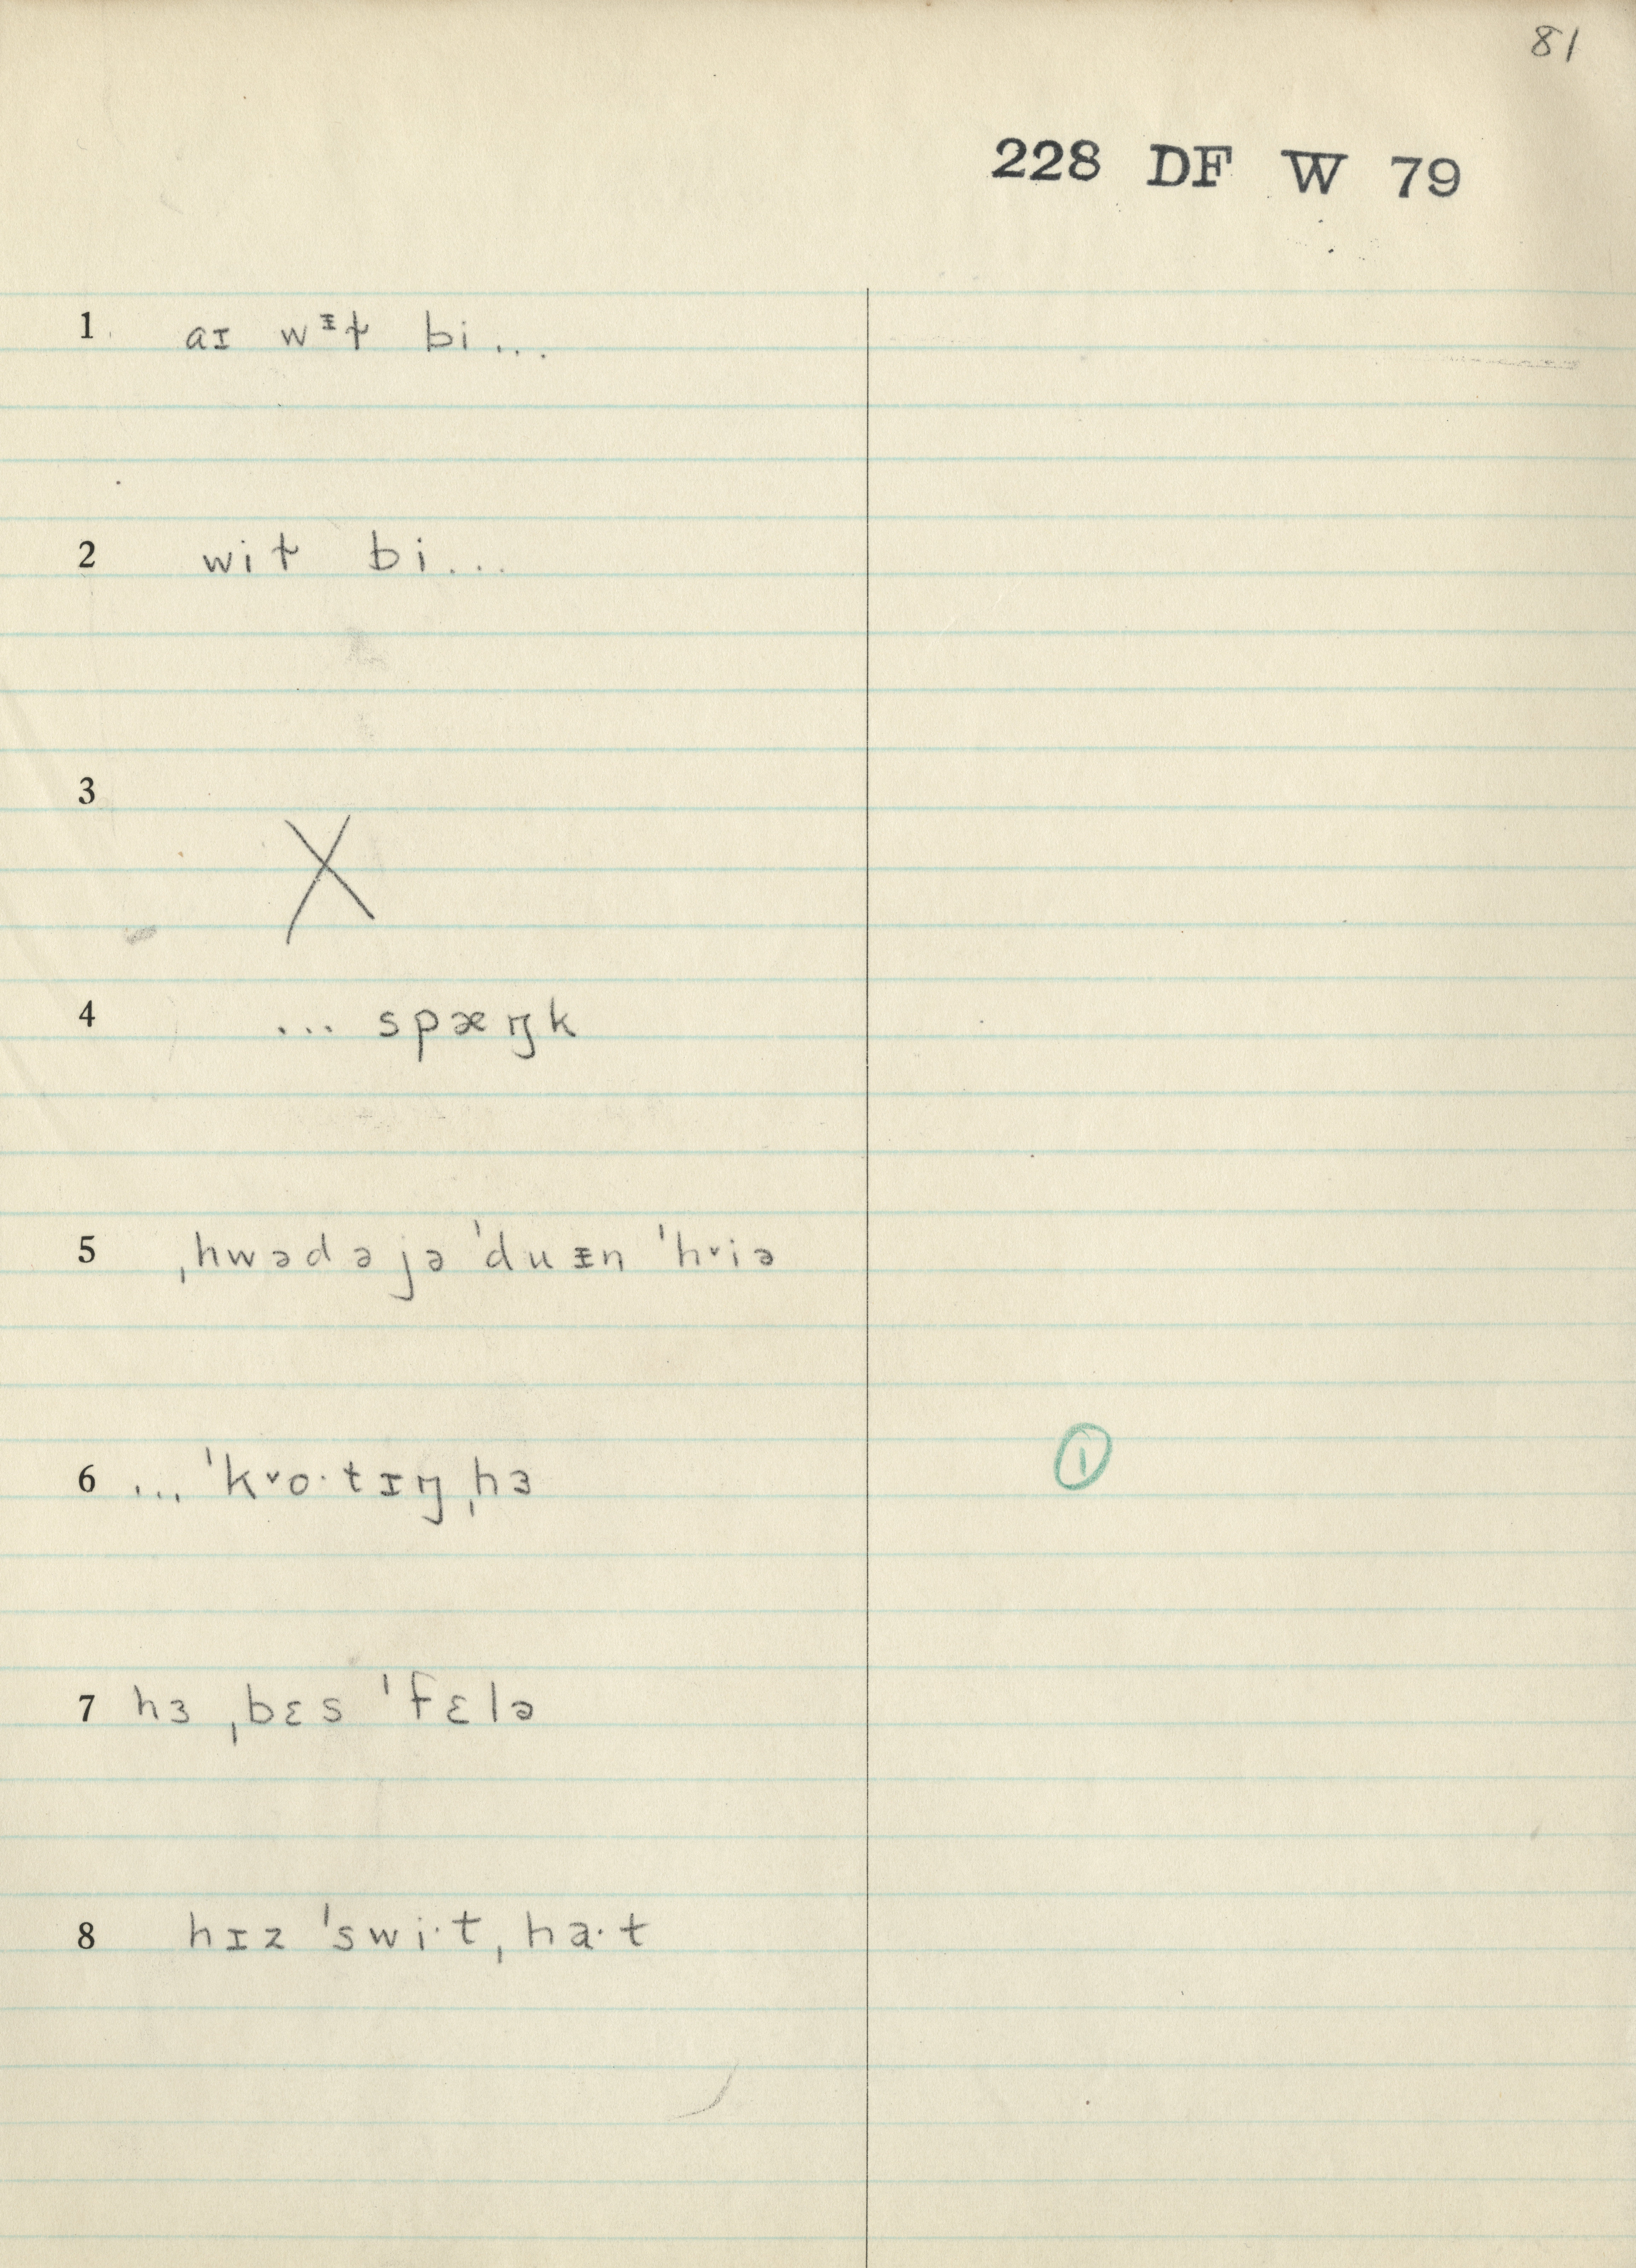 81
228 DF W 79
1 aɪ wᵻɫ bi...
2 wiɫ bi...
3 X
4 ... spæŋk
5 ˌhwədəjə ˈduᵻn ˈhᵛiə
6 ... ˈkᵛo·tɪŋ ˌhɜ
①
7 hɜ ˌbɛs ˈfɛlə
8 hɪz ˈswi·t ˌha·t